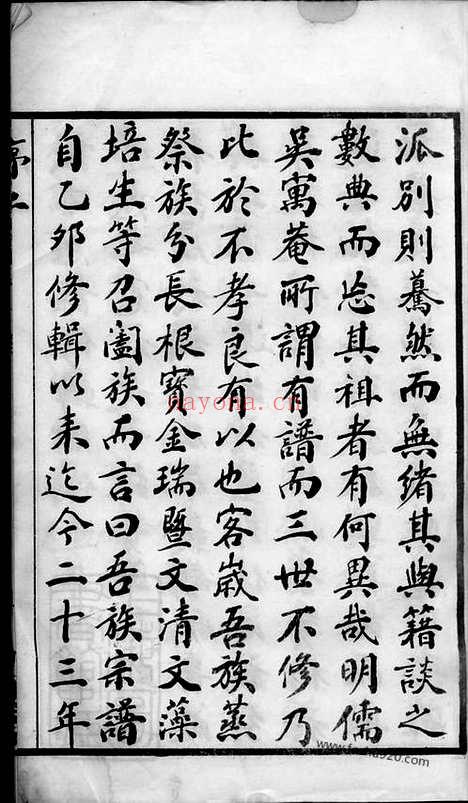 派別則驀然而無緒其與籍談之
數典而忘其祖者有何異哉明儒
吳寓菴所謂有譜而三世不修乃
比於不孝良有以也客歲吾族蒸
祭族分長根寶金瑞暨文清文藻
培生等召闔族而言曰吾族宗譜
自乙卯修輯以来迄今二十三年
序二
dayona.cn